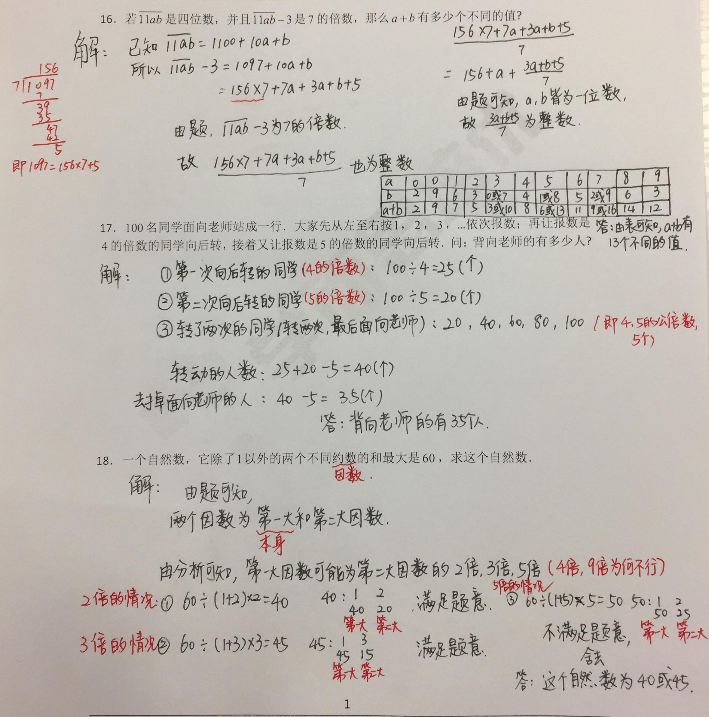 16. 若11ab是四位数，并且11ab-3是7的倍数，那么a+b有多少个不同的值？
解： 已知 11ab = 1100+10a+b
所以 11ab-3 = 1097+10a+b
= 156×7+7a+3a+b+5
由题, 11ab-3为7的倍数.
故 156×7+7a+3a+b+5 / 7 也为整数
156
7 1097
7
39
35
47
42
5
即1097=156×7+5
156×7+7a+3a+b+5 / 7
= 156+a+ 3a+b+5 / 7
由题可知, a, b皆为一位数,
故 3a+b+5 / 7 为整数.
a 0 0 1 2 3 4 5 6 7 8 9
b 2 9 6 3 0或7 4 1或8 5 2或9 6 3
a+b 2 9 7 5 3或10 8 6或13 11 9或16 14 12
答: 由表可知, a+b有
13个不同的值.
17. 100名同学面向老师站成一行．大家先从左至右按1，2，3，…依次报数；再让报数是
4的倍数的同学向后转，接着又让报数是5的倍数的同学向后转．问：背向老师的有多少人？
解： ①第一次向后转的同学(4的倍数)： 100÷4=25(个)
②第二次向后转的同学(5的倍数)： 100÷5=20(个)
③转了两次的同学(转两次,最后面向老师)： 20, 40, 60, 80, 100 (即4,5的公倍数,
5个)
转动的人数: 25+20-5=40(个)
去掉面向老师的人: 40-5=35(个)
答: 背向老师的有35个人.
18. 一个自然数，它除了1以外的两个不同约数的和最大是60，求这个自然数．
因数
解: 由题可知,
两个因数为第一大和第二大因数.
本身
由分析可知, 第一大因数可能为第二大因数的2倍,3倍,5倍 (4倍,9倍为何不行)
2倍的情况: ① 60÷(1+2)×2=40 40: 1 2
40 20
第一大 第二大
满足题意.
3倍的情况 ② 60÷(1+3)×3=45 45: 1 3
45 15
第一大 第二大
满足题意.
5倍的情况
③ 60÷(1+5)×5=50 50: 1 2
50 25
不满足题意, 第一大 第二大
舍去
答: 这个自然数为40或45.
1